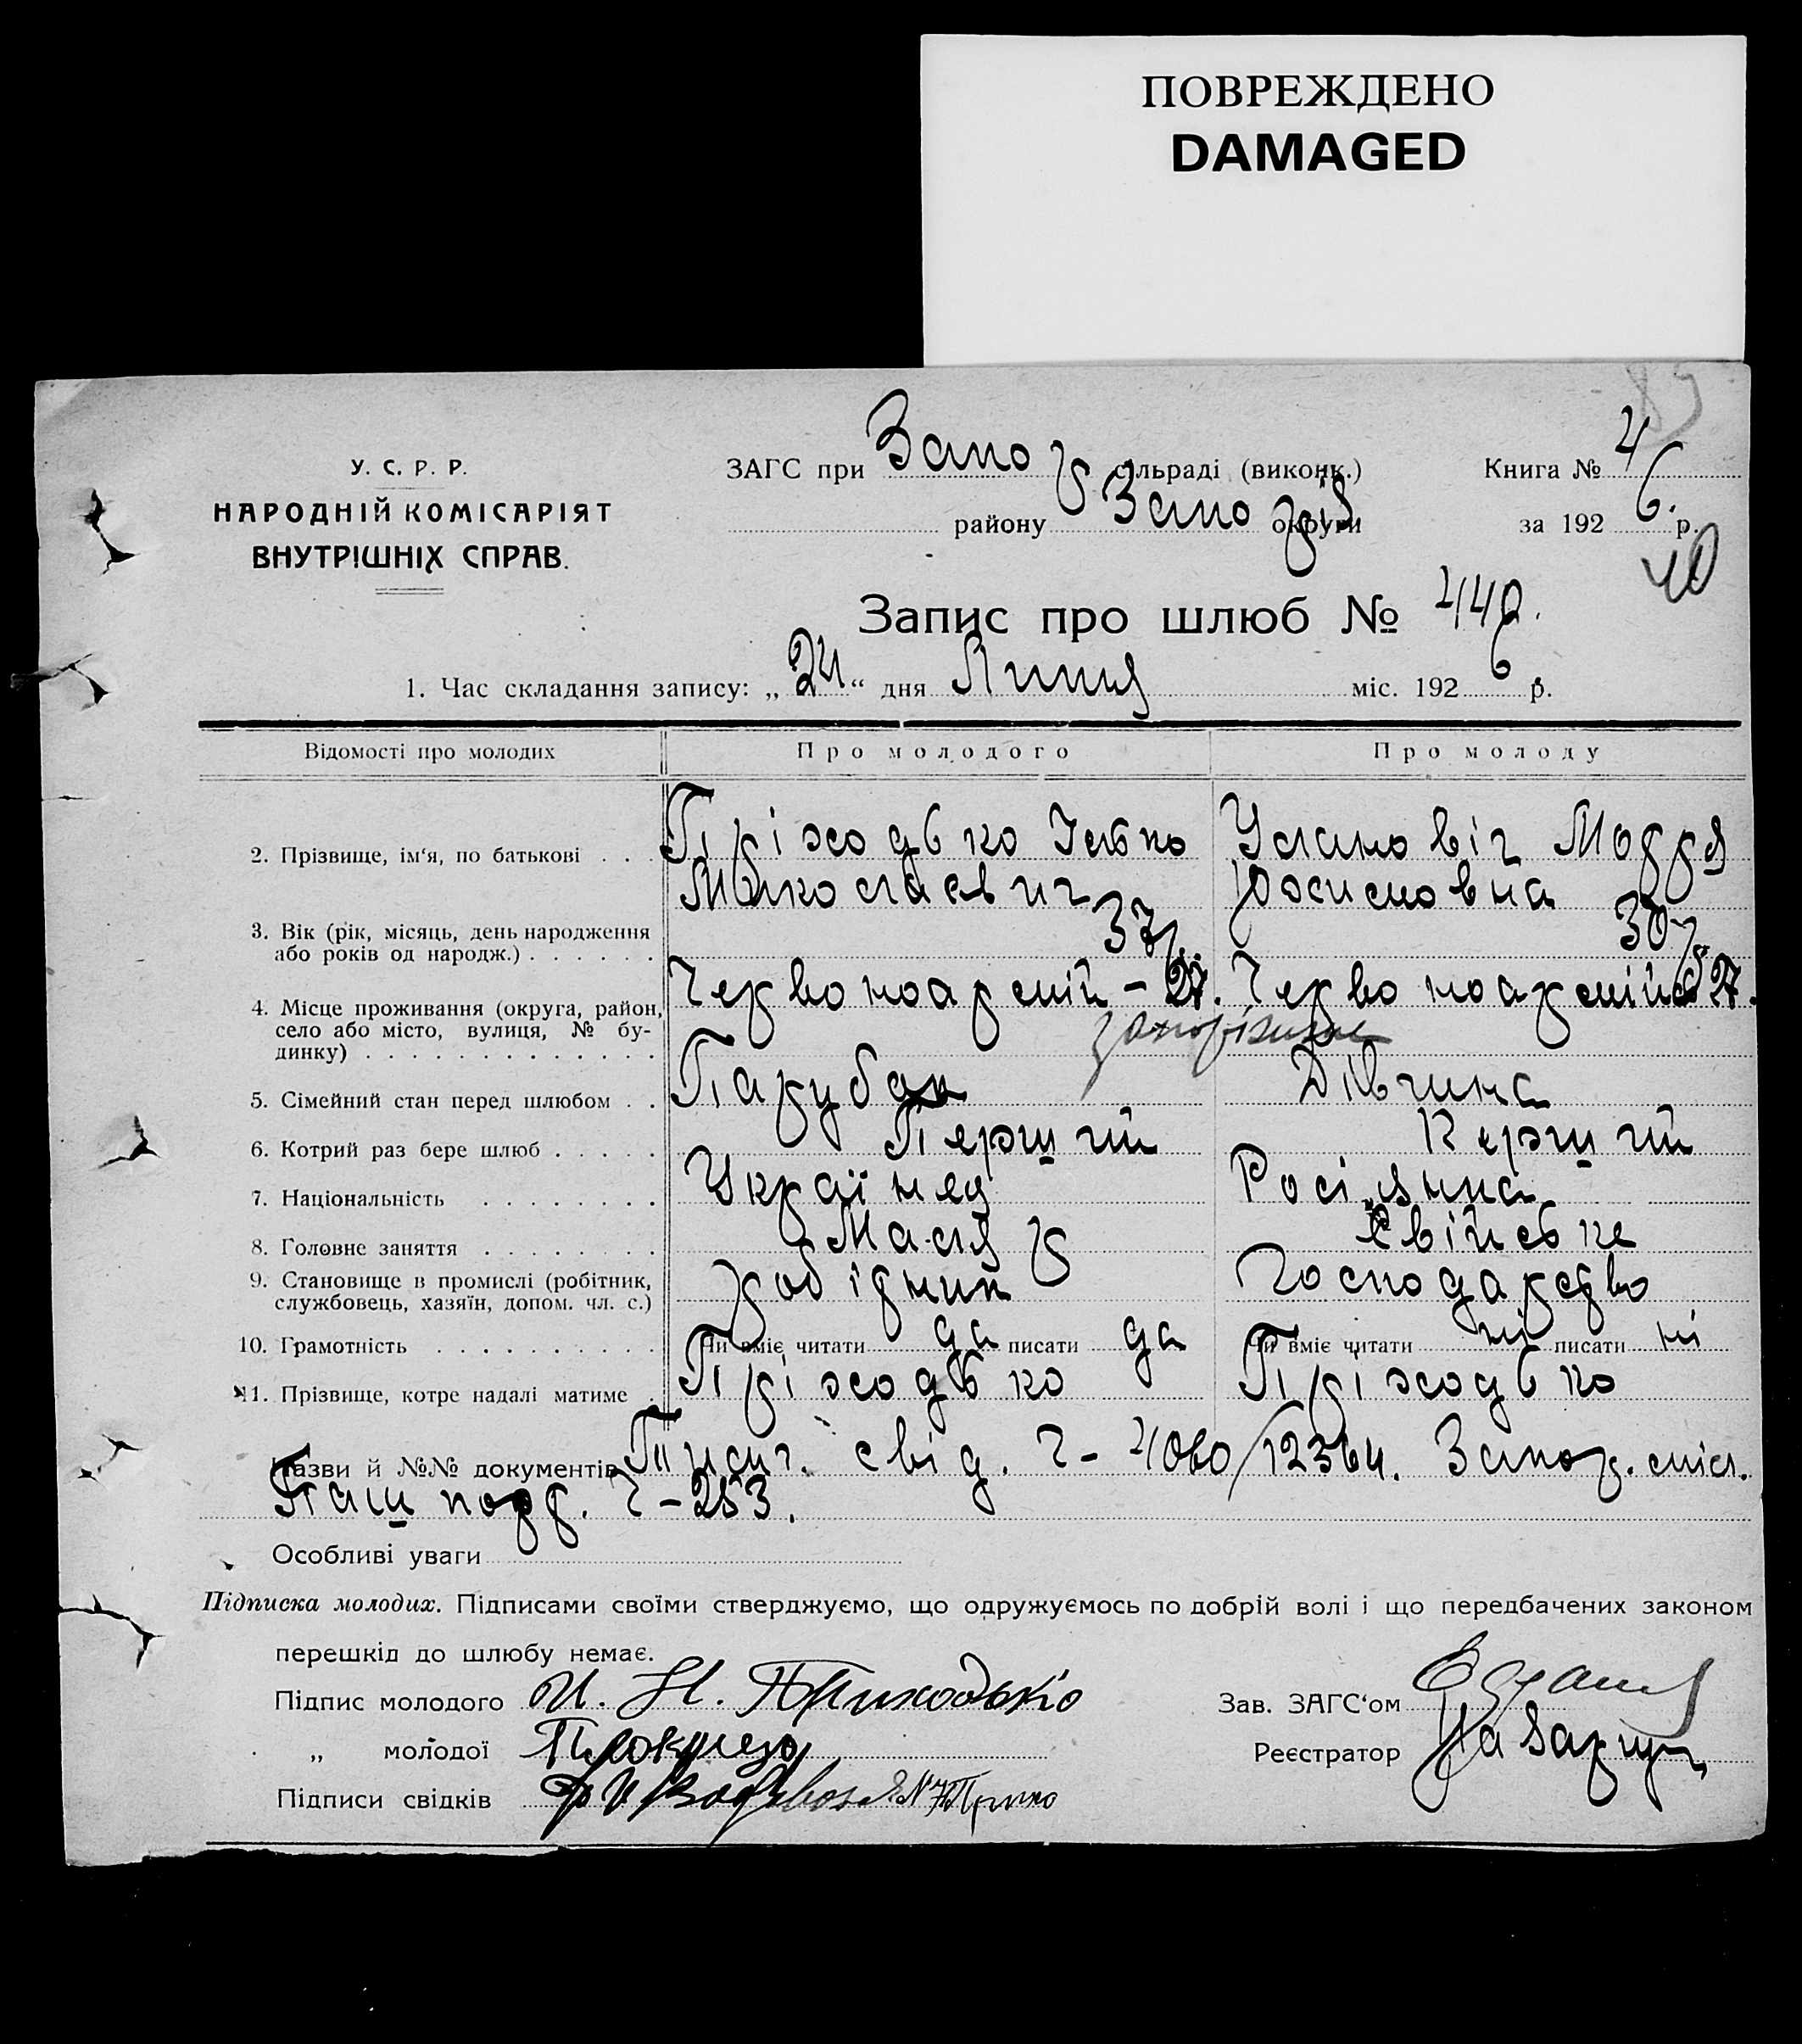 ПОВРЕЖДЕНО
DAMAGED
У. С. Р. Р.
НАРОДНІЙ КОМІСАРІЯТ
ВНУТРІШНІХ СПРАВ.
ЗАГС при Запор сільраді (виконк.)
району Запоріз округи
Книга № 4
за 192 6 р.
40
Запис про шлюб № 440.
1. Час складання запису: „ 24 “ дня Липня міс. 192 6 р.
Відомості про молодих Про молодого Про молоду
2. Прізвище, ім'я, по батькові Пріходько
Миколаєвич
3. Вік (рік, місяць, день народження
або років од народж.) 37р. 30р.
4. Місце проживання (округа, район,
село або місто, вулиця, № бу-
динку) Червоноармій - 27. Червоноармійс 27.
5. Сімейний стан перед шлюбом Парубак Дівчина
6. Котрий раз бере шлюб Перший Перший
7. Національність Українец Росіянка
8. Головне заняття Маляр Свійське
9. Становище в промислі (робітник,
службовець, хазяїн, допом. чл. с.) робідник Господарство
10. Грамотність Чи вміє читати да писати да Чи вміє читати ні писати ні
11. Прізвище, котре надалі матиме Пріходько Пріходько
Назви й №№ документів свід. Ч- /12364. Запор. міл.
Ч-253.
Особливі уваги
Підписка молодих. Підписами своїми стверджуємо, що одружуємось по добрій волі і що передбачених законом
перешкід до шлюбу немає.
Підпис молодого И. Н. Приходько
„ молодої
Підписи свідків
Зав. ЗАГС'ом
Реєстратор